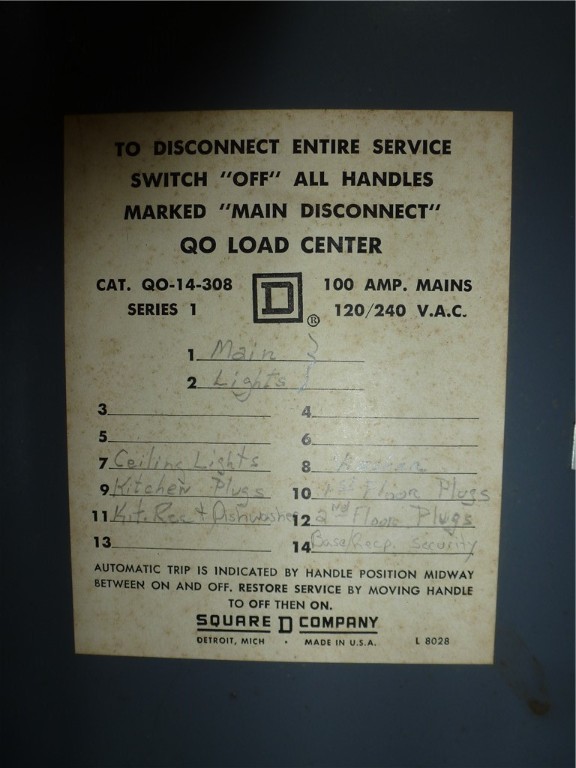 TO DISCONNECT ENTIRE SERVICE
SWITCH "OFF" ALL HANDLES
MARKED "MAIN DISCONNECT"
QO LOAD CENTER
CAT. QO-14-308 D 100 AMP. MAINS
SERIES 1 ® 120/240 V.A.C.
1 Main
2 Lights
3 4
5 6
7 Ceiling Lights 8
9 Kitchen Plugs 10 1st Floor Plugs
11 Kit. Rec. + Dishwasher 12 2nd Floor Plugs
13 14 Base Recp. Security
AUTOMATIC TRIP IS INDICATED BY HANDLE POSITION MIDWAY
BETWEEN ON AND OFF. RESTORE SERVICE BY MOVING HANDLE
TO OFF THEN ON.
SQUARE D COMPANY
DETROIT, MICH • MADE IN U.S.A. L 8028